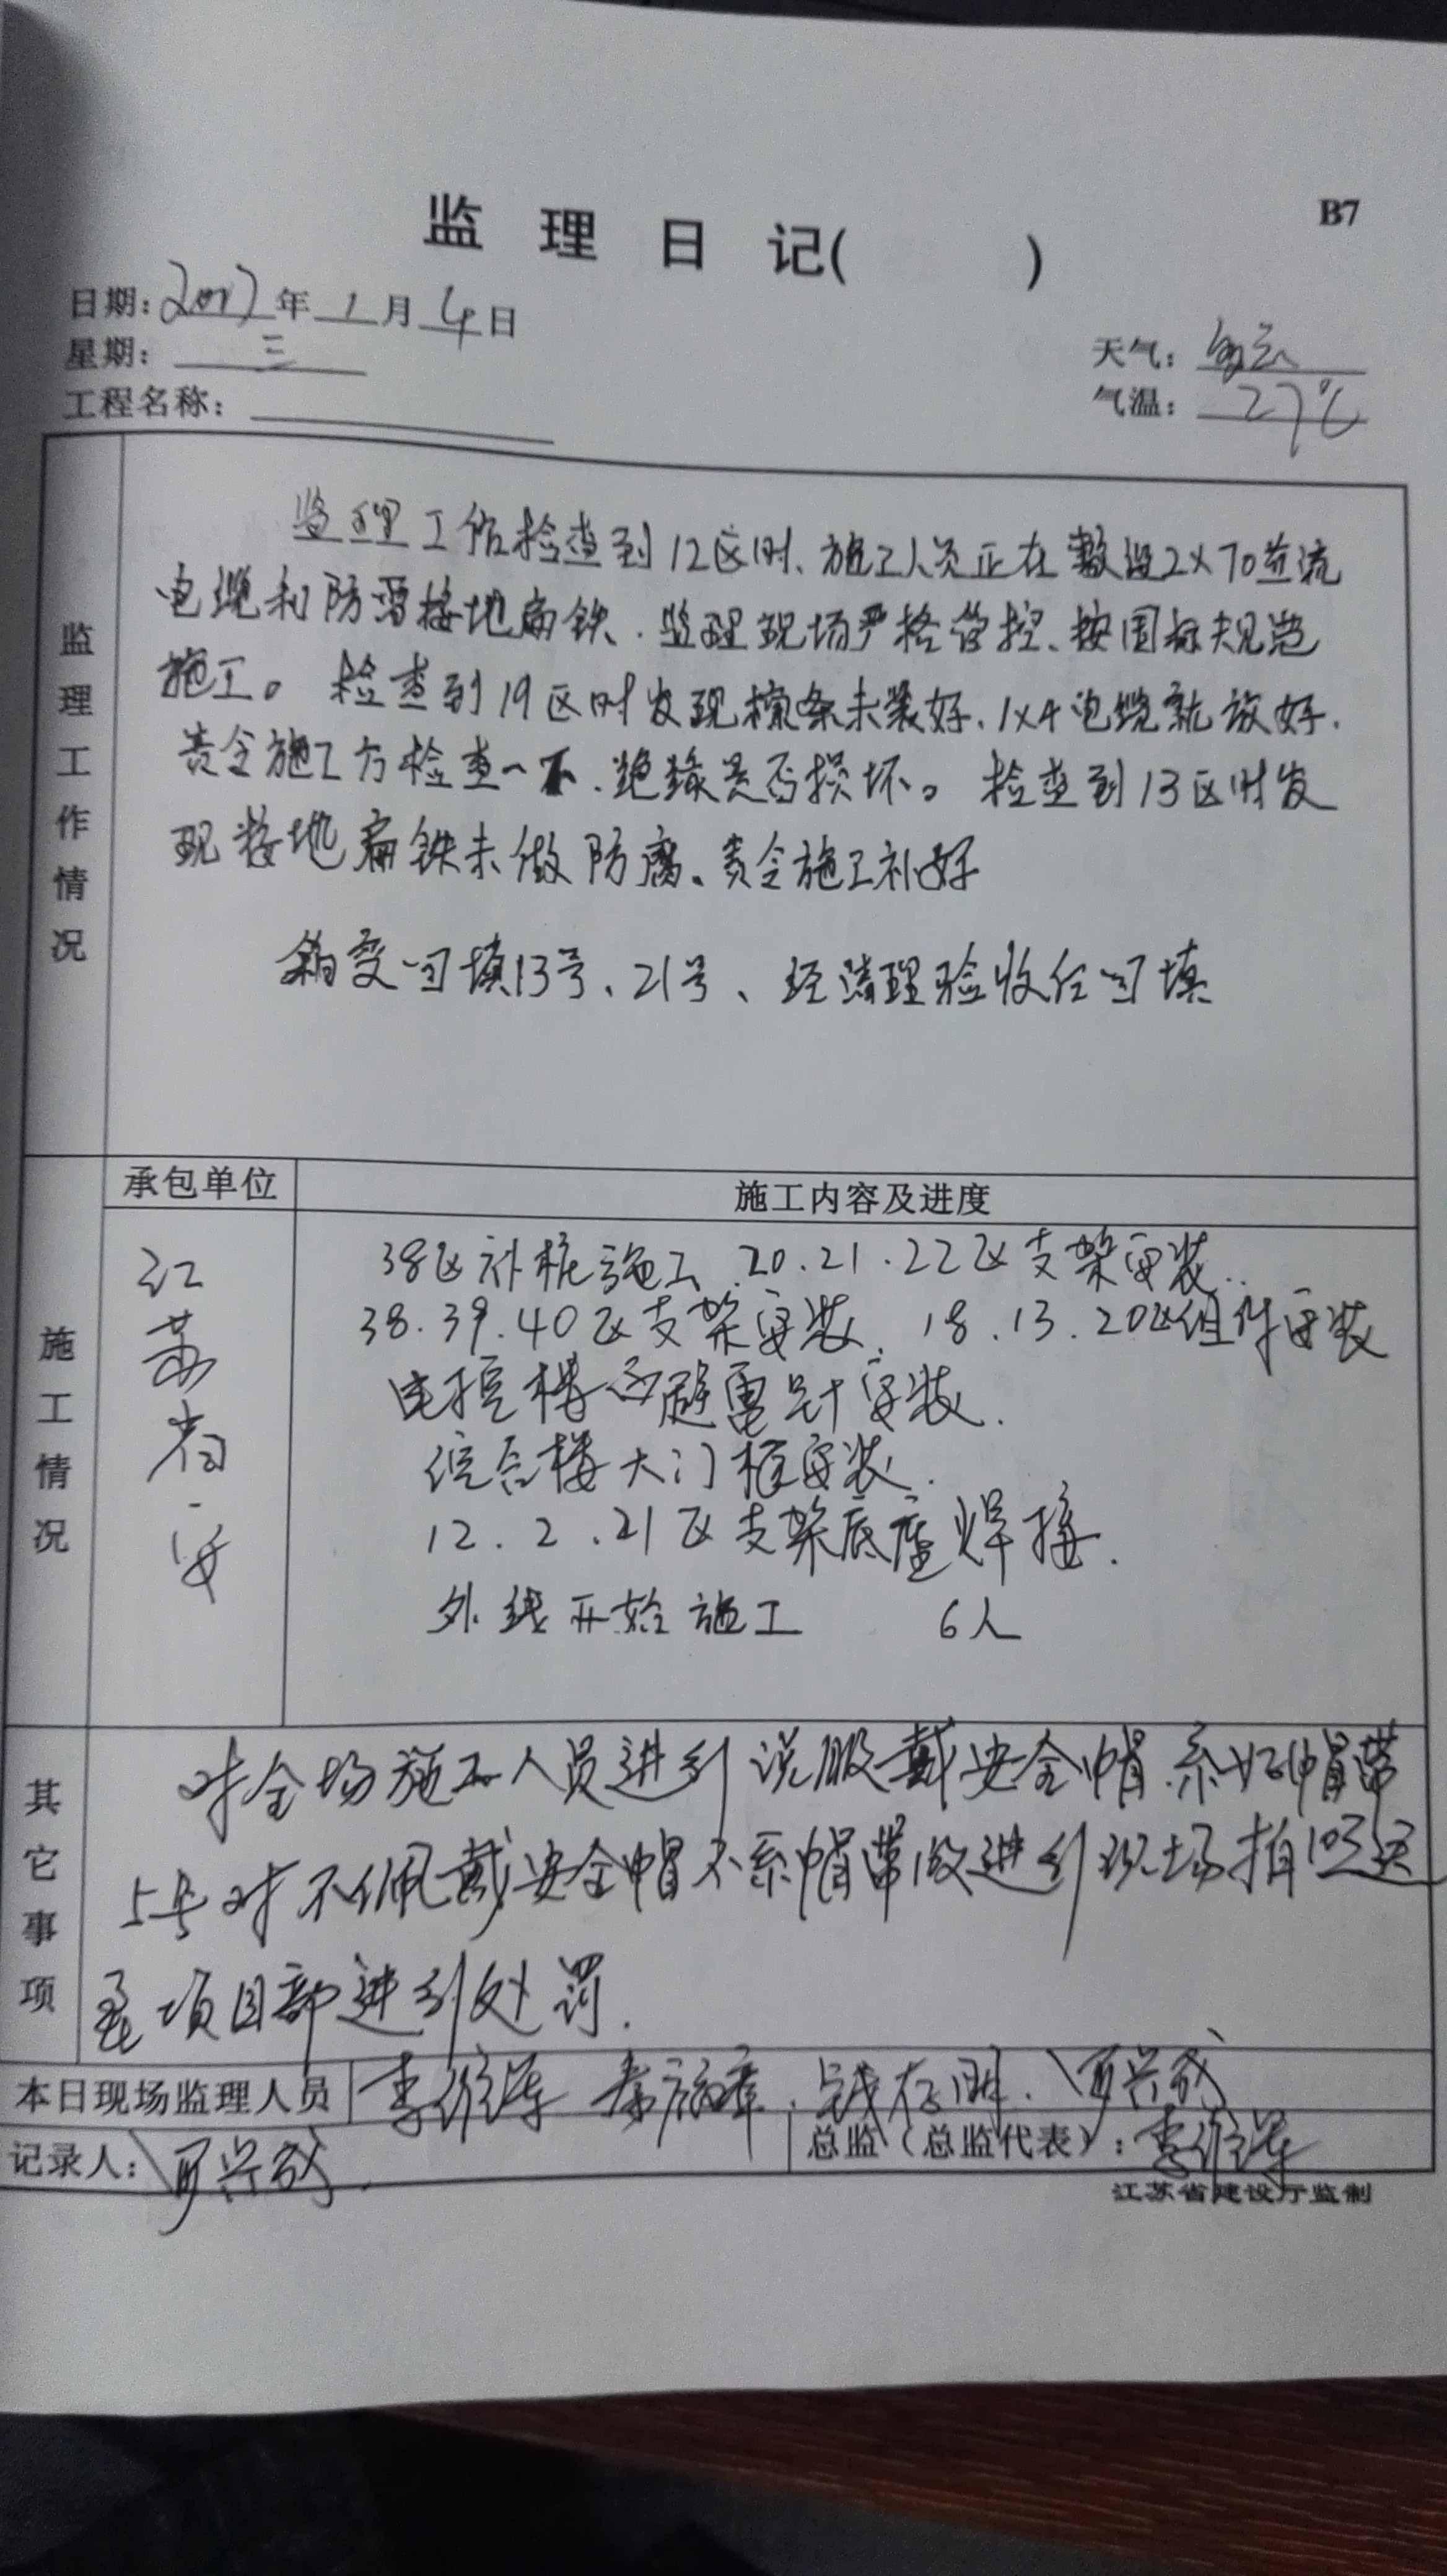 B7
监理日记( )
日期:2017年1月4日
星期:三
天气:多云
工程名称:
气温:27℃
监理工作情况
监理工作检查到12区时、施工人员正在敷设2×70直流
电缆和防雷接地扁铁.监理现场严格管控、按国标规范
施工。检查到19区时发现檩条未装好、1×4电缆就放好.
责令施工方检查一下、绝缘是否损坏。检查到13区时发
现接地扁铁未做防腐、责令施工补好
箱变回填13号、21号、经清理验收后回填
施工情况
承包单位
施工内容及进度
江苏省安
38区补桩施工.20.21.22区支架安装..
38.39.40区支架安装.18.13.20区组件安装
电控楼 避雷针安装.
综合楼大门框安装.
12.2.21区支架底座焊接.
外线开始施工 6人
其它事项
对全场施工人员进行说服戴安全帽.系好帽带
5号对不佩戴安全帽不系帽带 进行现场拍照送
至项目部进行处罚.
本日现场监理人员 李维 . 钱存明.
记录人:
总监(总监代表):李维
江苏省建设厅监制